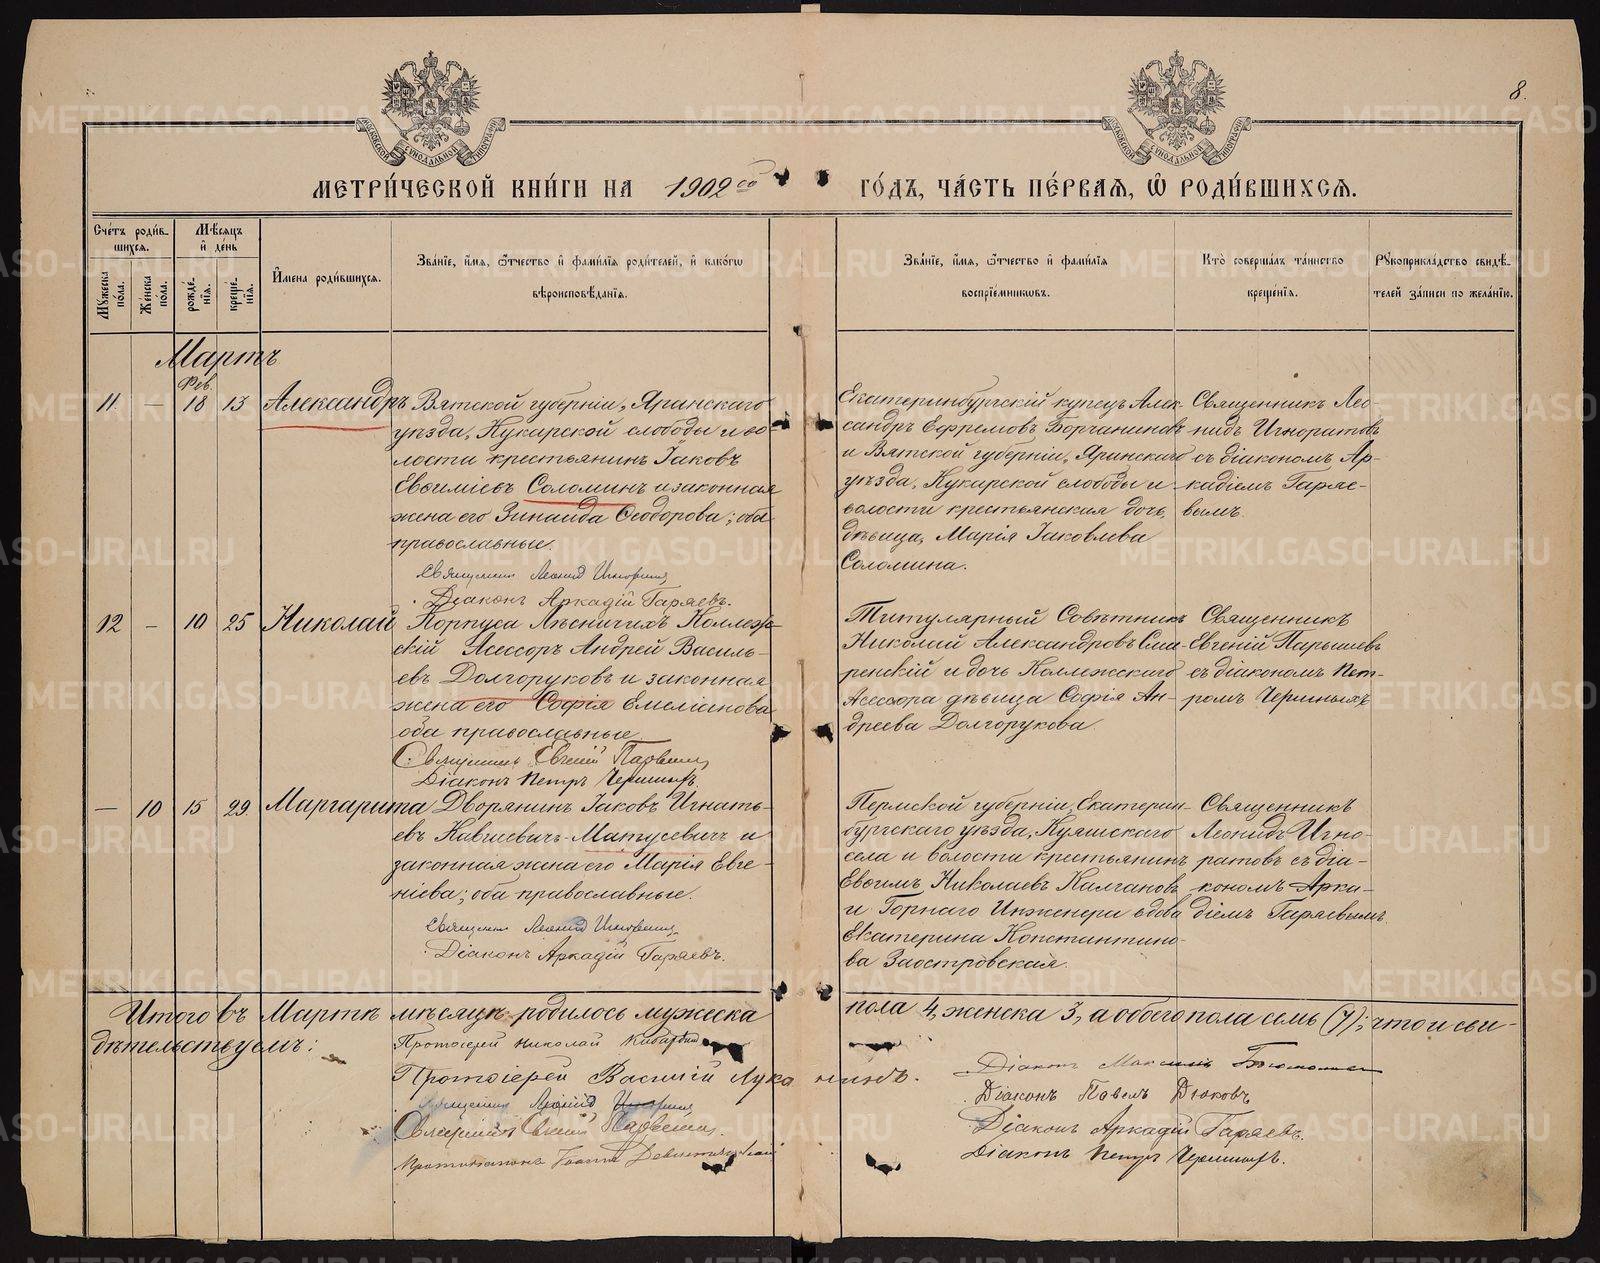 8.
МОСКОВСКОЙ СѴНОДАЛЬНОЙ ТИПОГРАФІИ
МОСКОВСКОЙ СѴНОДАЛЬНОЙ ТИПОГРАФІИ
МЕТРИ́ЧЕСКОЙ КНИ́ГИ НА 1902 ой ГО́ДЪ, ЧА́СТЬ ПЕ́РВАЯ, Ѡ РОДИ́ВШИХСЯ.
Сче́тъ роди́в-
шихся.
Мѣсяцъ
и́ де́нь
Мꙋжеска по́ла.
Же́нска по́ла.
рожде́-
нїя.
креще́-
нїя.
И́мена роди́вшихся.
Зва́нїе, и́мя, ѻ҆́тчество и҆ фами́лїѧ роди́телей, и҆ како́гѡ
вѣроисповѣ́данїѧ.
Зва́нїе, и́мя, ѻ҆́тчество и҆ фами́лїѧ
воспрїе́мникѡвъ.
Кто̀ соверша́лъ та́инство
креще́нїѧ.
Рꙋкоприкла́дство свидѣ́-
телей за́писи по жела́нїю.
Мартъ
11. — Фев. 18 13 Александръ
Вятской губерніи, Яранскаго
уѣзда, Кукарской слободы и во-
лости крестьянинъ Іаковъ
Евѳиміевъ Соломинъ и законная
жена его Зинаида Ѳеодорова; оба
православные.
Священникъ Леонид Игноратов
Діаконъ Аркадій Гаряевъ.
Екатеринбургскій купецъ Алек-
сандръ Ефремовъ Борчаниновъ
и Вятской губерніи, Яранскаго
уѣзда, Кукарской слободы и
волости крестьянская дочь,
дѣвица, Марія Іаковлева
Соломина.
Священникъ Лео-
нидъ Игноратовъ
съ діакономъ Ар-
кадіемъ Гаряе-
вымъ.
12 — 10 25 Николай
Корпуса Лѣсничихъ Коллеж-
скій Асессоръ Андрей Василь-
евъ Долгоруковъ и законная
жена его Софія Емеліанова
оба православные
Священникъ Евгеній Парышев
Діаконъ Петръ Черныхъ.
Титулярный Совѣтникъ
Николай Александровъ Сма-
ренскій и дочь Коллежскаго
Асессора дѣвица Софія Ан-
дреева Долгорукова.
Священникъ
Евгеній Парышевъ
съ діакономъ Пет-
ромъ Черныхъ
— 10 15 29. Маргарита
Дворянинъ Іаковъ Игнать-
евъ Матусевичъ и
законная жена его Марія Евге-
ніева; оба православные.
Священник Леонид Игноратов
Діаконъ Аркадій Гаряевъ.
Пермской губерніи, Екатерин-
бургскаго уѣзда, Куяшскаго
села и волости крестьянинъ
Евѳимъ Николаевъ Калгановъ
и Горнаго Инженера вдова
Екатерина Константино-
ва Заостровская.
Священникъ
Леонидъ Игно-
ратовъ съ діа-
кономъ Арка-
діемъ Гаряевымъ.
Итого въ Мартѣ мѣсяцѣ родилось мужеска пола 4, женска 3, а обоего пола семь (7); что и сви-
дѣтельствуемъ:
Протоіерей Николай
Протоіерей Василій Луканинъ.
Священник Леонид
Священникъ Евгеній Парышев.
Протодіаконъ Іоаннъ
Діаконъ
Діаконъ Павелъ Дюковъ
Діаконъ Аркадій Гаряевъ.
Діаконъ Петръ Черныхъ.
METRIKI.GASO-URAL.RU